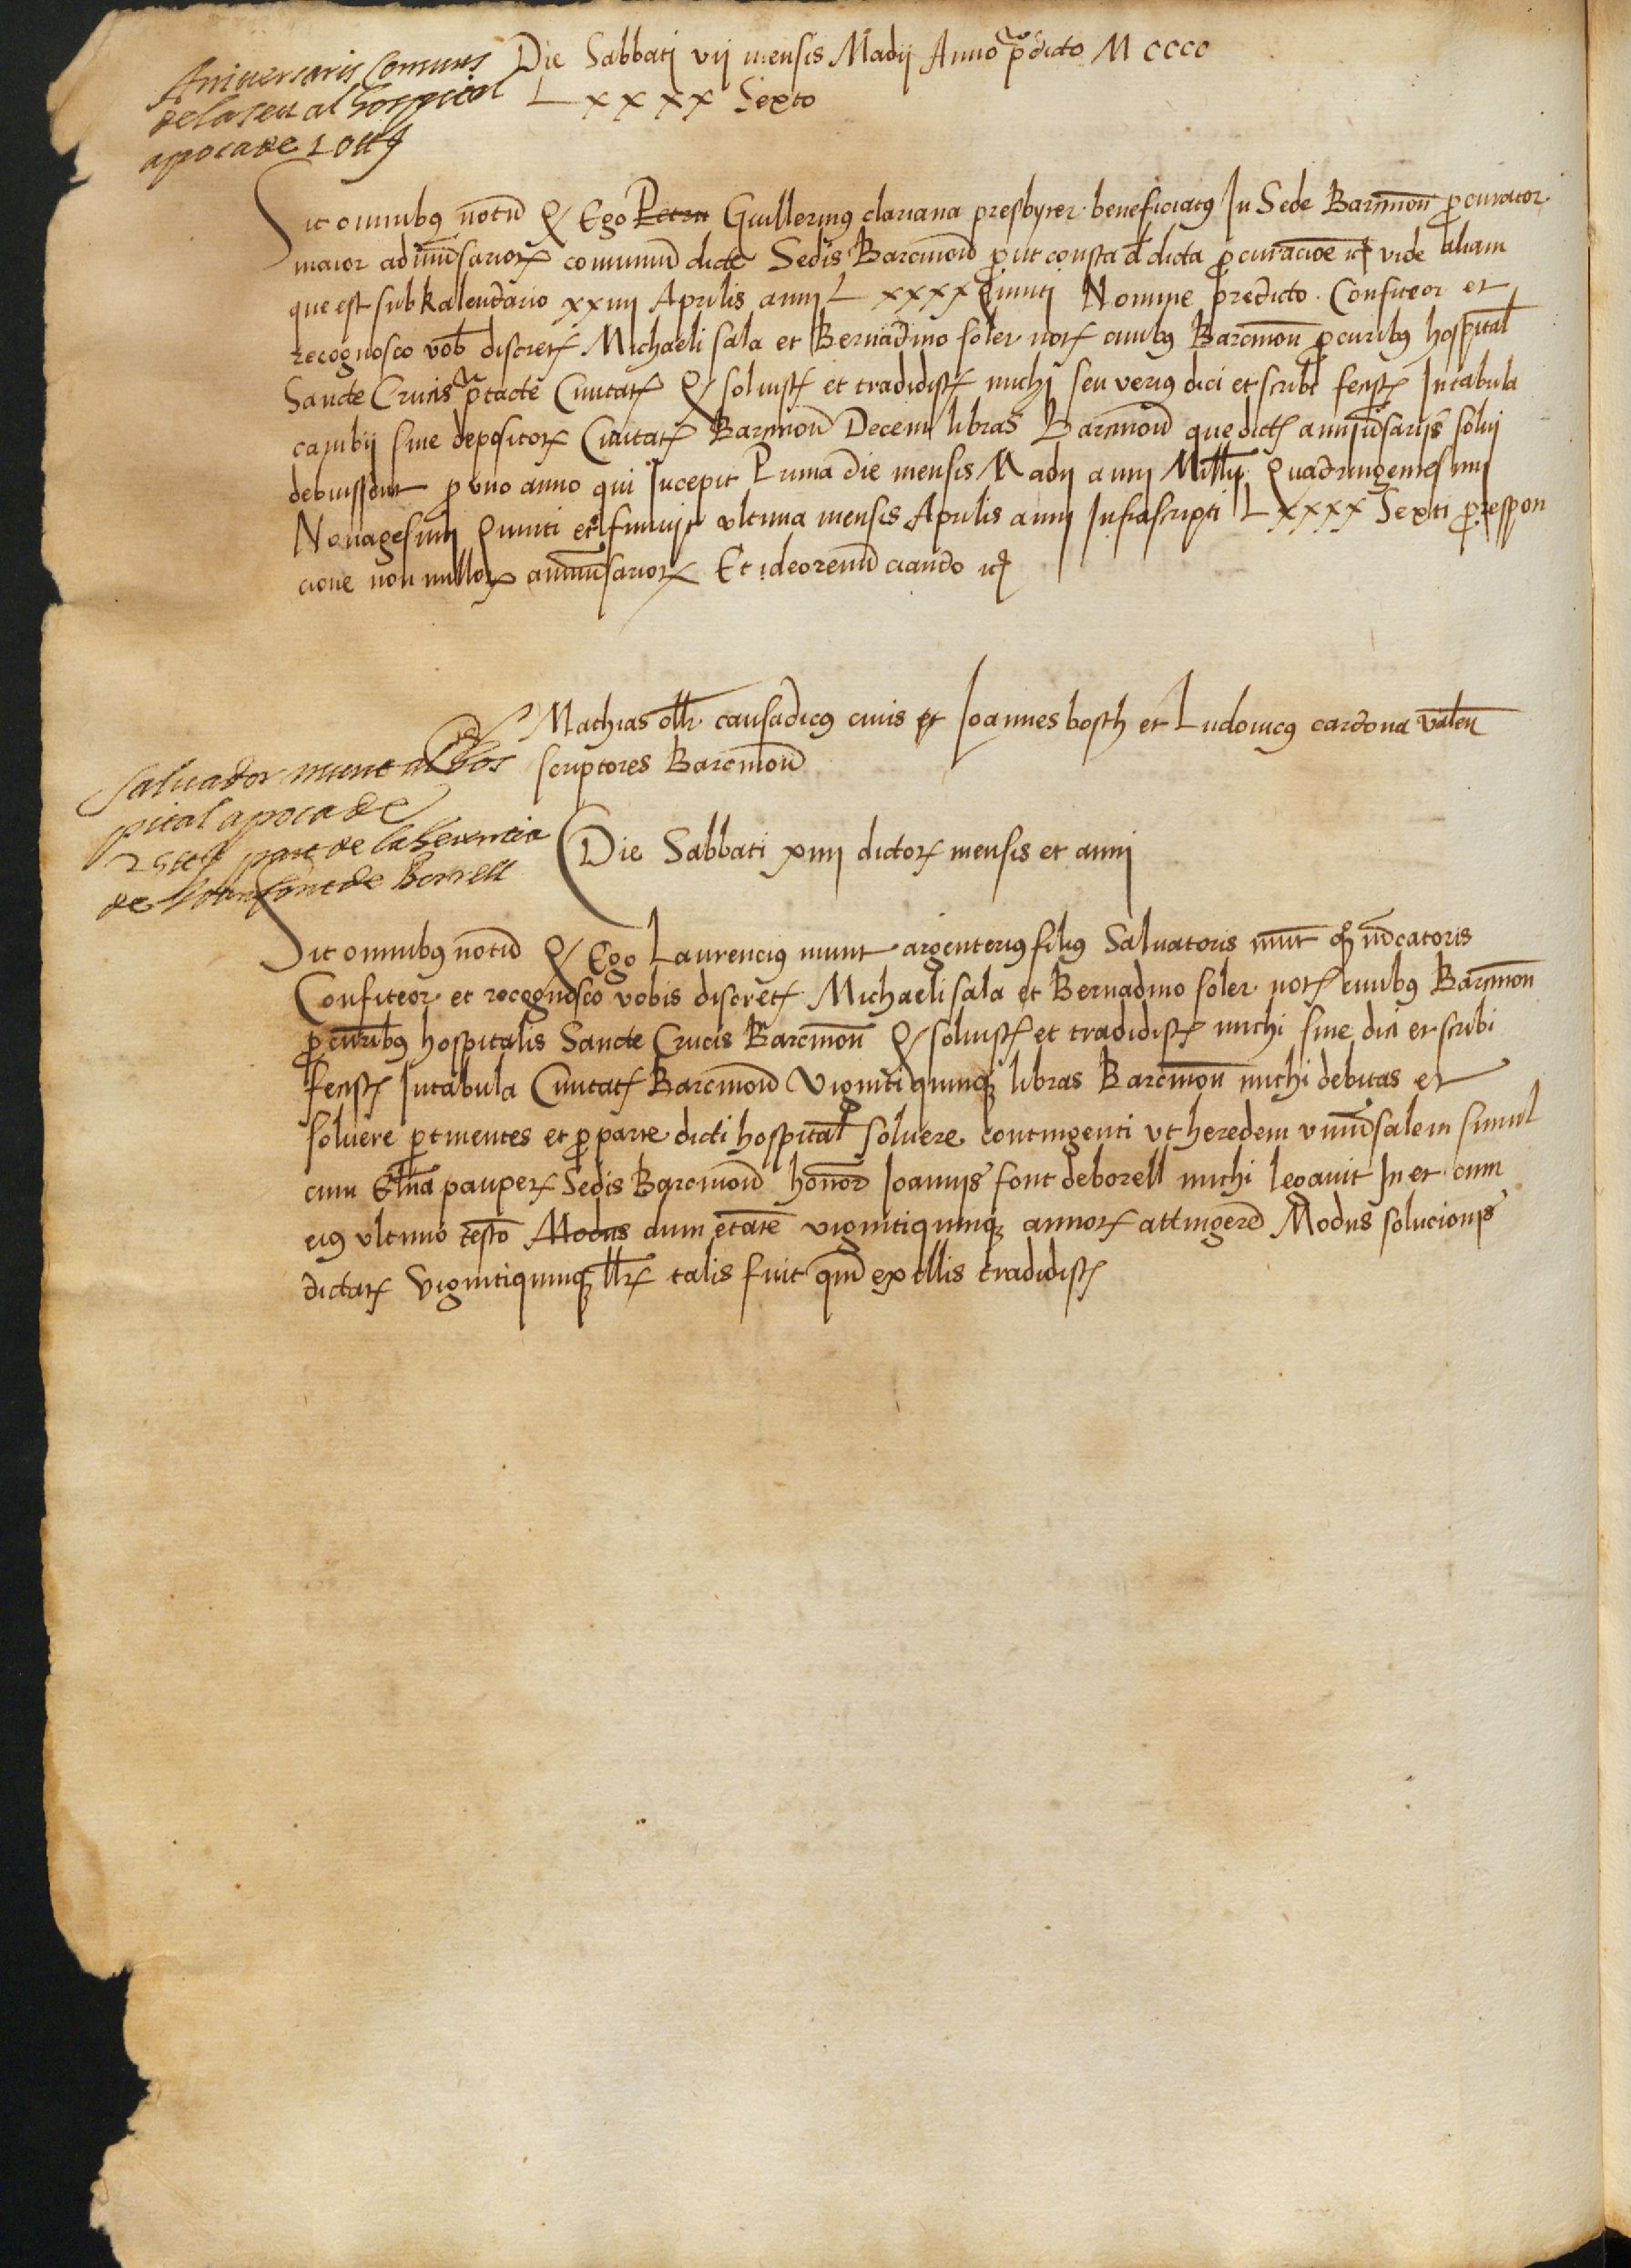 Aniversaris Comuns
de la seu al hospital
apoca de 10 ll
Die Sabbati vij mensis Madij Anno p̄dicto M cccc
L xxxx Sexto
Sit omnibus notū q Ego Petru Guillermus clariana presbyter beneficiatus In Sede Barcinon̄ procurator
maior adniūsarior comuniū dicte Sedis Barcinon̄ prout consta d dicta procuracioē vide aliam
que est sub kalendario xxiiij Aprilis anni L xxxx Quinti Nomine predicto Confiteor et
recognosco vob discret Michaeli sala et Bernadino soler not ciuibus Barcinon̄ procuribus hospital
Sancte Crucis p̄tacte Ciuitat q soluist et tradidist michi seu verius dici et scribi fecist In tabula
cambij siue depositor Ciuitat Barcinon̄ Decem libras Barcinon̄ que dict anniūsarijs solui
debuissent pro vno anno qui Incepit Prima die mensis Madij anni Mill̄i Quadringentesimi
Nonagesimi Quinti et finiuit vltima mensis Aprilis anni Infrascripti L xxxx Sexti pro respon
cione non nullor anniūsarior Et ideo renūciando
Mathias oll̄r causadicus ciuis et Joannes bosch et Ludouicus cardona valen̄
scriptores Barcinon̄
Saluador munt al hos
pital apoca de
25 ll part de la heretncia
de Joan font de Borrell
Die Sabbati xiiij dictor mensis et anni
Sit omnibus notū q Ego Laurencius munt argenterius filius Saluatoris munt q̄ m̄catoris
Confiteor et recognosco vobis discret Michaeli sala et Bernadino soler not ciuibus Barcinon̄
procuribus hospitalis Sancte Crucis Barcinon̄ q soluist et tradidist michi siue dici et scribi
fecist In tabula Ciuitat Barcinon̄ Vigintiquinq libras Barcinon̄ michi debitas et
soluere ptinentes et pro parte dicti hospital soluere contingenti vt heredem vniūsalem simul
cum El̄na pauper Sedis Barcinon̄ honor̄ Joannis font de borell michi legauit In et cum
eius vltimo testō Modus cum etatē vigintiquinq annor attingerē Modus solucionis
dictar Vigintiquinq ll̄r talis fuit qm̄ ex illis tradidist